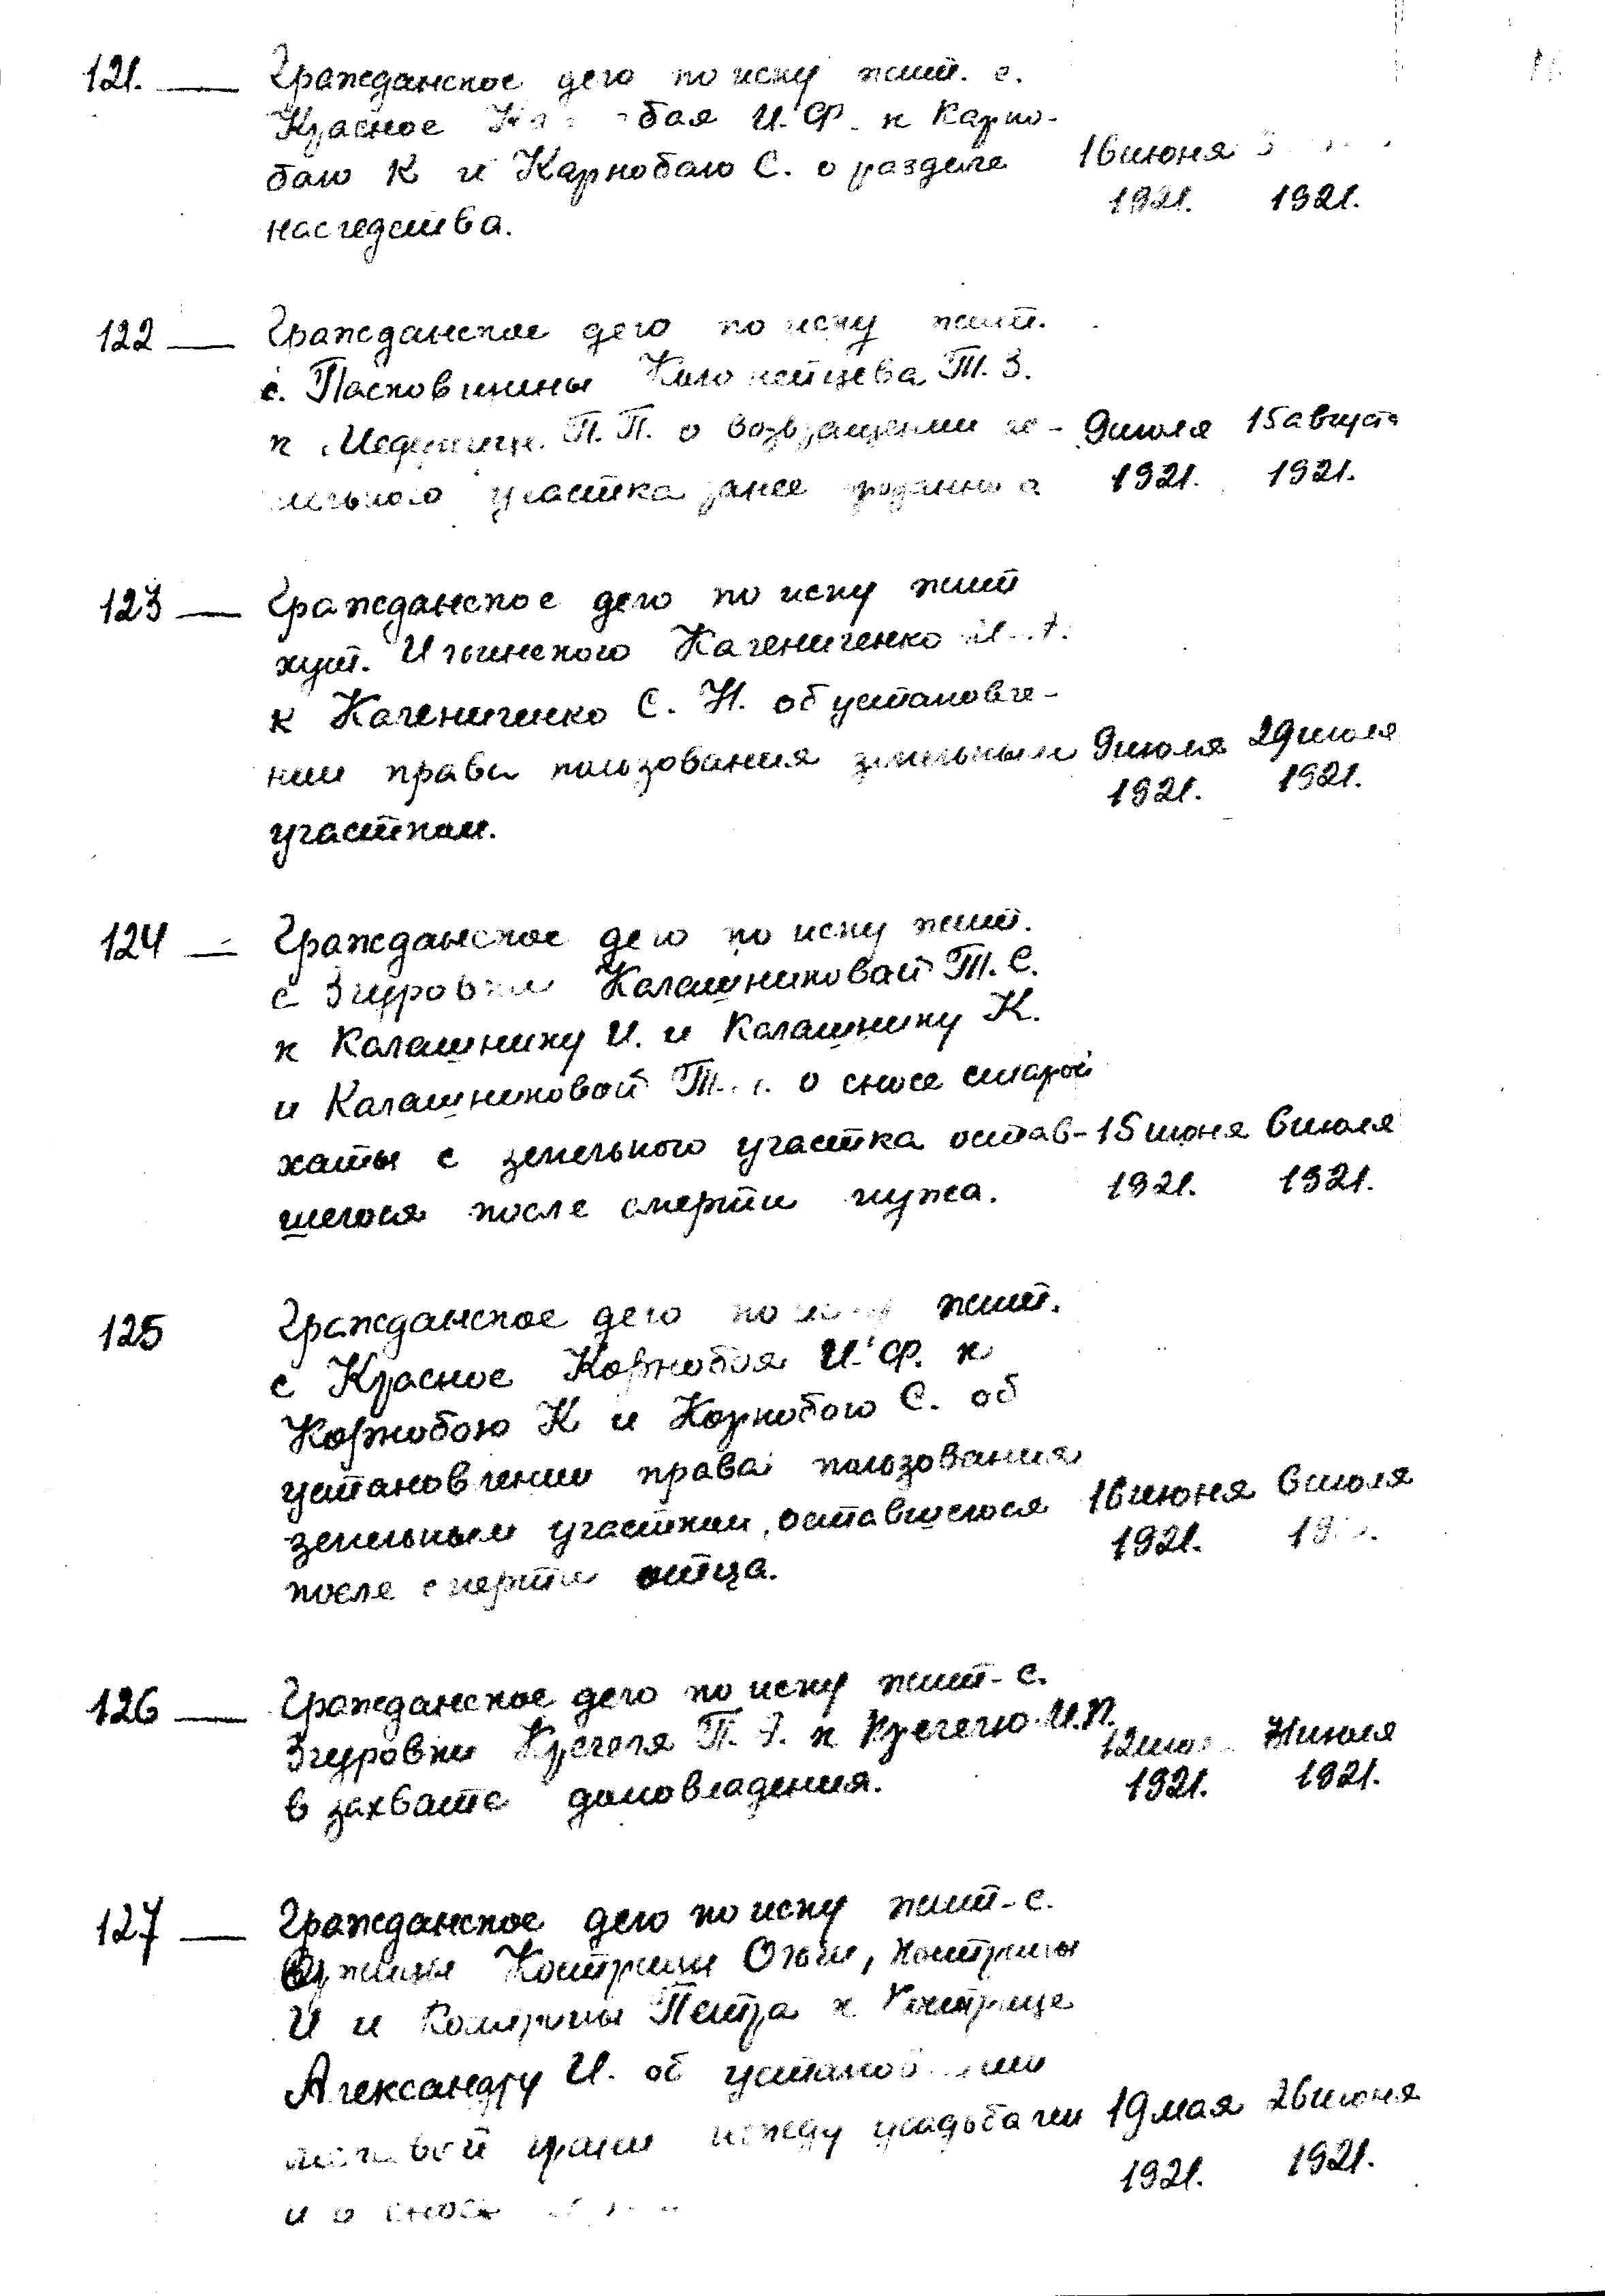 121. — Гражданское дело по иску жит. с.
Красное И.Ф. к Карно-
баю К и Карнобаю С. о разделе 16 июня
наследства. 1921. 1921.
122 — Гражданское дело по иску жит.
с. Пасковщины Коломейцева Т.З.
к П.П. о возвращении зе- 9 июля 15 августа
мельного участка ранее 1921. 1921.
123 — Гражданское дело по иску жит
хут. Ильинского Калениченко
к Калениченко С.Н. об установле-
нии права пользования земельным 9 июля 29 июля
участком. 1921. 1921.
124 — Гражданское дело по иску жит.
с Згуровки Калашниковой Т.С.
к Калашнику И. и Калашнику К.
и Калашниковой Т. о сносе старой
хаты с земельного участка остав- 15 июня 6 июля
шегося после смерти мужа. 1921. 1921.
125 Гражданское дело по иску жит.
с Красное Карнобоя И.Ф. к
Карнобою К и Карнобою С. об
установлении права пользования
земельным участком, оставшегося 16 июня 6 июля
после смерти отца. 1921.
126 — Гражданское дело по иску жит-с.
Згуровки Крегеля П. к Крегелю И.П.
в захвате домовладения. 12 июля
1921. 1921.
127 — Гражданское дело по иску жит-с.
Костриции Ольги, Кострицы
И и Кострицы Петра к Кострице
Александру И. об установлении
межевой грани между усадьбами 19 мая 26 июня
и о сносе 1921. 1921.